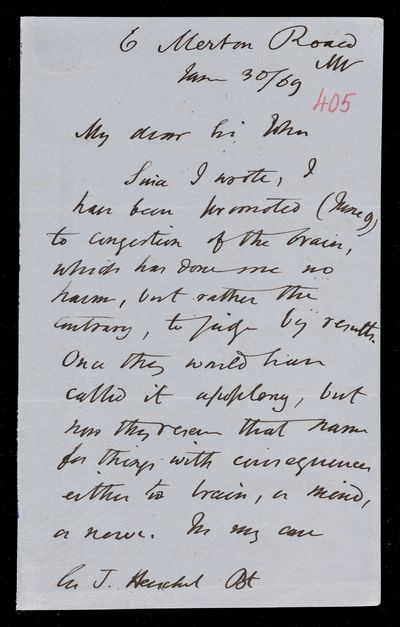 6 Merton Road
NW
June 30/69
405
My dear Sir John
Since I wrote, I
have been promoted (June 9)
to congestion of the brain,
which has done me no
harm, but rather the
contrary, to judge by results.
Once they would have
called it apoplexy, but
now they reserve that name
for things with consequences
either to brain, or mind,
or nerve. In my case
Sir J. Herschel Bt